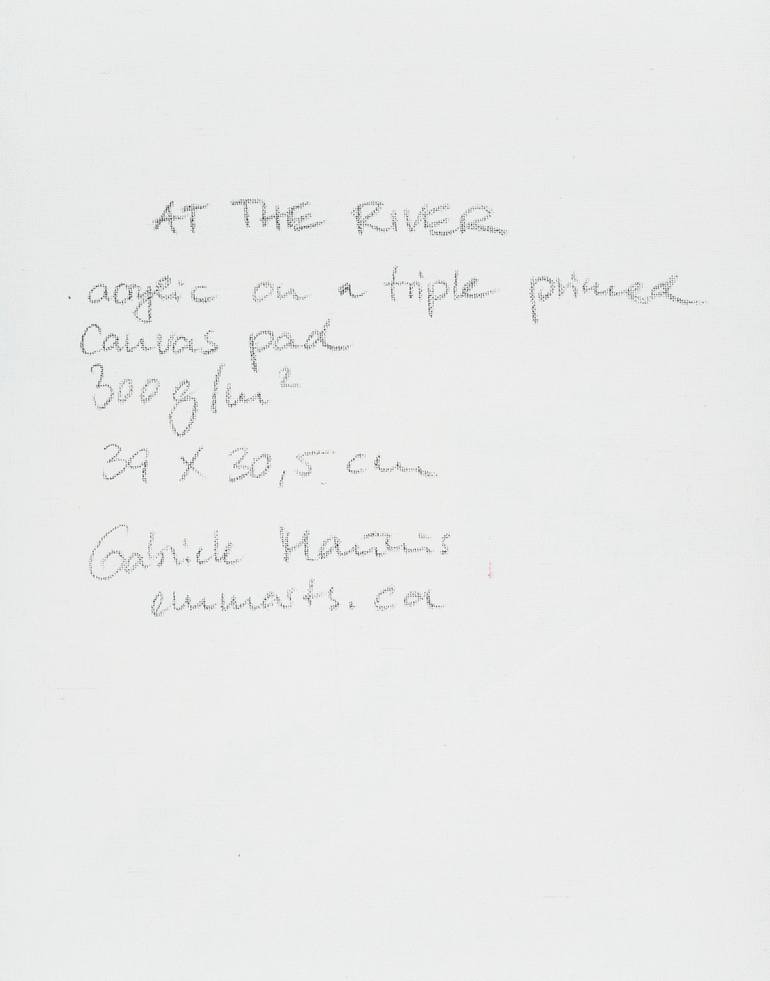 AT THE RIVER
acrylic on a triple primed
Canvas pad
300g/m²
39 x 30,5 cm
Gabriele
emmarts.ca